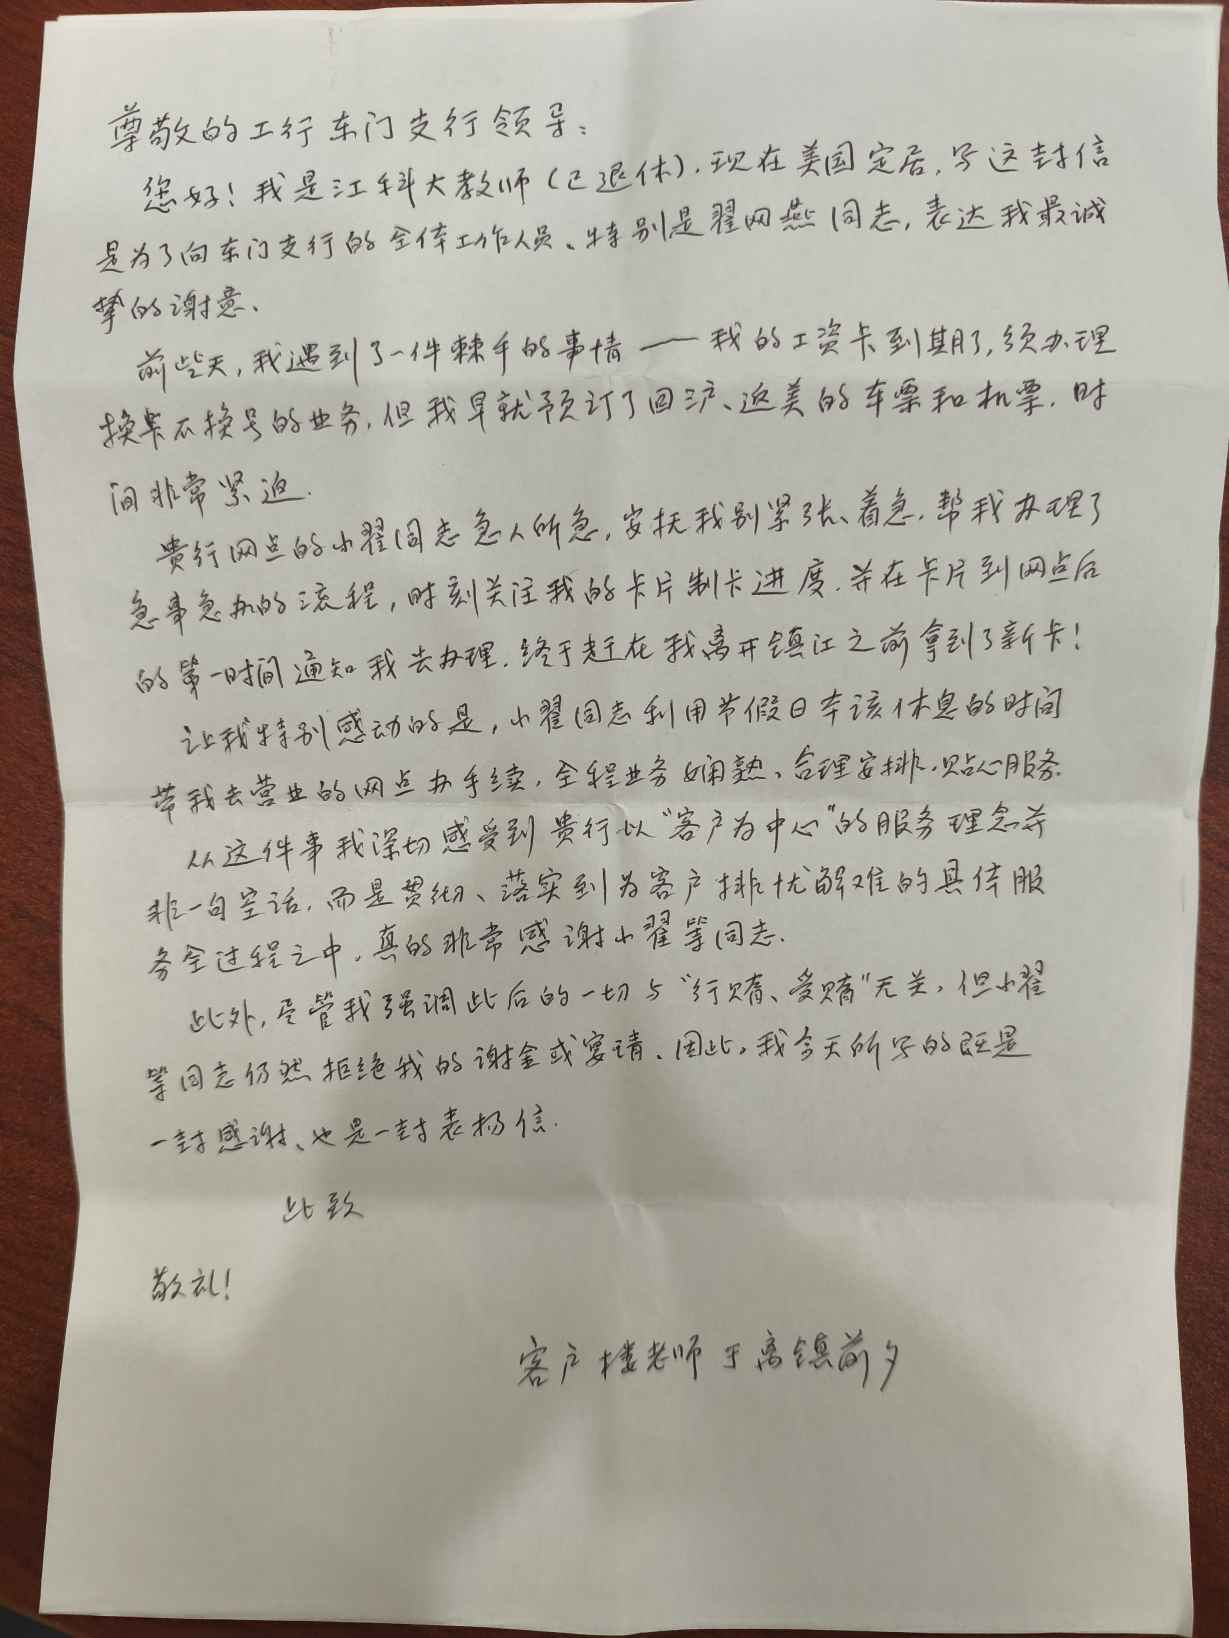 尊敬的工行东门支行领导：
您好！我是江科大教师（已退休），现在美国定居，写这封信
是为了向东门支行的全体工作人员、特别是翟网燕同志，表达我最诚
挚的谢意、
前些天，我遇到了一件棘手的事情——我的工资卡到期了，须办理
换卡不换号的业务，但我早就预订了回沪、返美的车票和机票，时
间非常紧迫.
贵行网点的小翟同志急人所急，安抚我别紧张、着急，帮我办理了
急事急办的流程，时刻关注我的卡片制卡进度，并在卡片到网点后
的第一时间通知我去办理，终于赶在我离开镇江之前拿到了新卡！
让我特别感动的是，小翟同志利用节假日本该休息的时间
带我去营业的网点办手续，全程业务娴熟、合理安排、贴心服务.
从这件事我深切感受到贵行以“客户为中心”的服务理念并
非一句空话，而是贯彻、落实到为客户排忧解难的具体服
务全过程之中，真的非常感谢小翟等同志.
此外，尽管我强调此后的一切与“行贿、受贿”无关，但小翟
等同志仍然拒绝我的谢金或宴请、因此，我今天所写的既是
一封感谢、也是一封表扬信.
此致
敬礼！
客户 楼老师 于离镇前夕